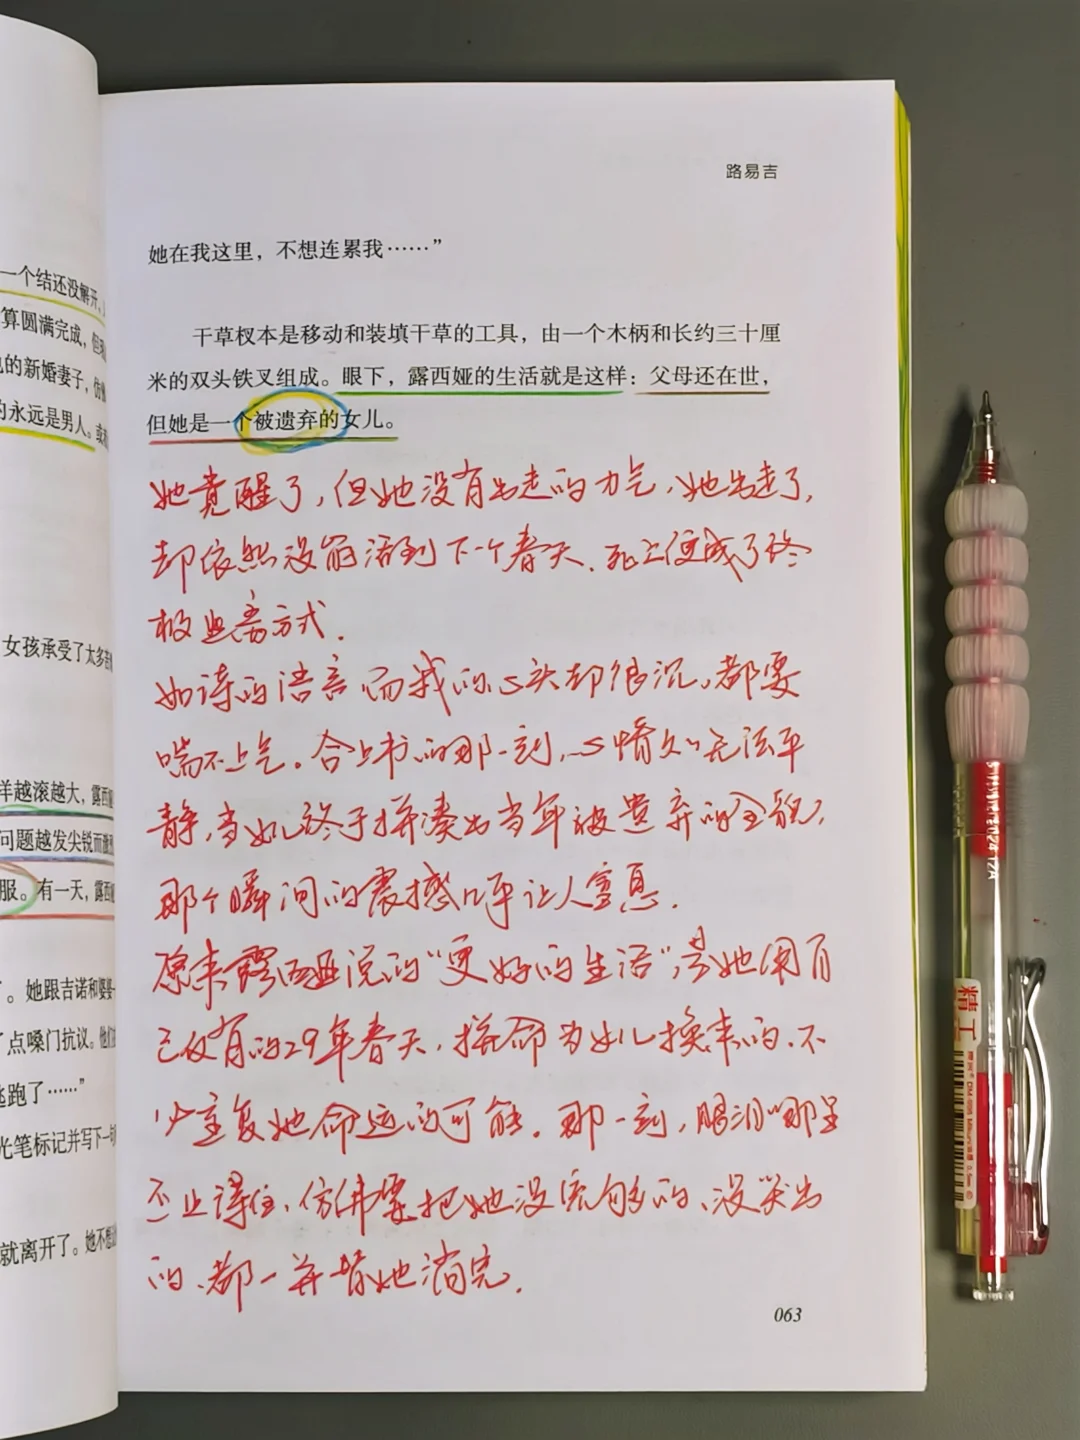 一个结还没解开。
算圆满完成，但
的新婚妻子，仿
的永远是男人。或
女孩承受了太多苦
样越滚越大，露西
问题越发尖锐而激
服。有一天，露西
。她跟吉诺和婆婆一
点嗓门抗议。他们
逃跑了……”
光笔标记并写下一句
就离开了。她不想
路易吉
她在我这里，不想连累我……”
干草杈本是移动和装填干草的工具，由一个木柄和长约三十厘
米的双头铁叉组成。眼下，露西娅的生活就是这样：父母还在世，
但她是一个被遗弃的女儿。
她竟醒了，但她没有出走的力气，她出走了，
却依然没能活到下一个春天、死亡便成了终
极逃离方式．
如诗的语言而我的心头却很沉，都要
喘不上气。合上书的那一刻，心情久久无法平
静，当女儿终于拼凑出当年被遗弃的全貌，
那个瞬间的震撼几乎让人窒息．
原来露西娅说的“更好的生活”是她用有
且仅有的29年春天，拼命为女儿换来的、不
必重复她命运的可能。那一刻，眼泪哪里
还止得住，仿佛要把她没流够的、没哭出
的、都一并替她淌完．
063
精工
2024 12A